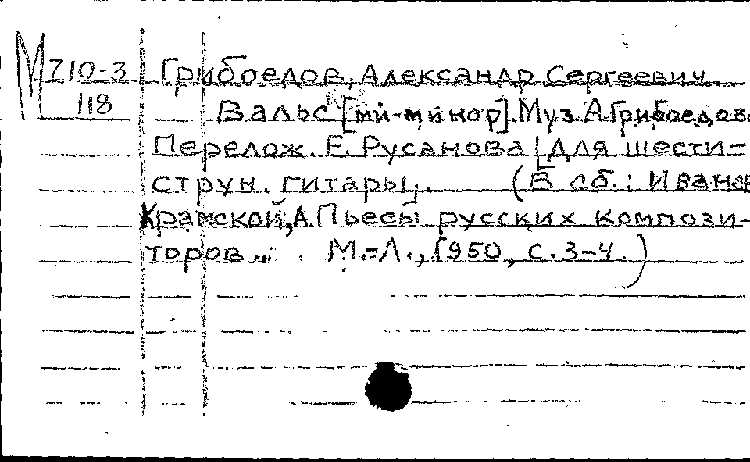 М 710-3 Грибоедов, Александр Сергеевич.
118 Вальс [ми-минор]. Муз. А Грибоедова
Перелож. Е. Русанова [Для шести-
струн. гитары]. (В сб.: Иванов
Крамской, А. Пьесы русских компози-
торов... . М.-Л., 1950, с. 3-4.)